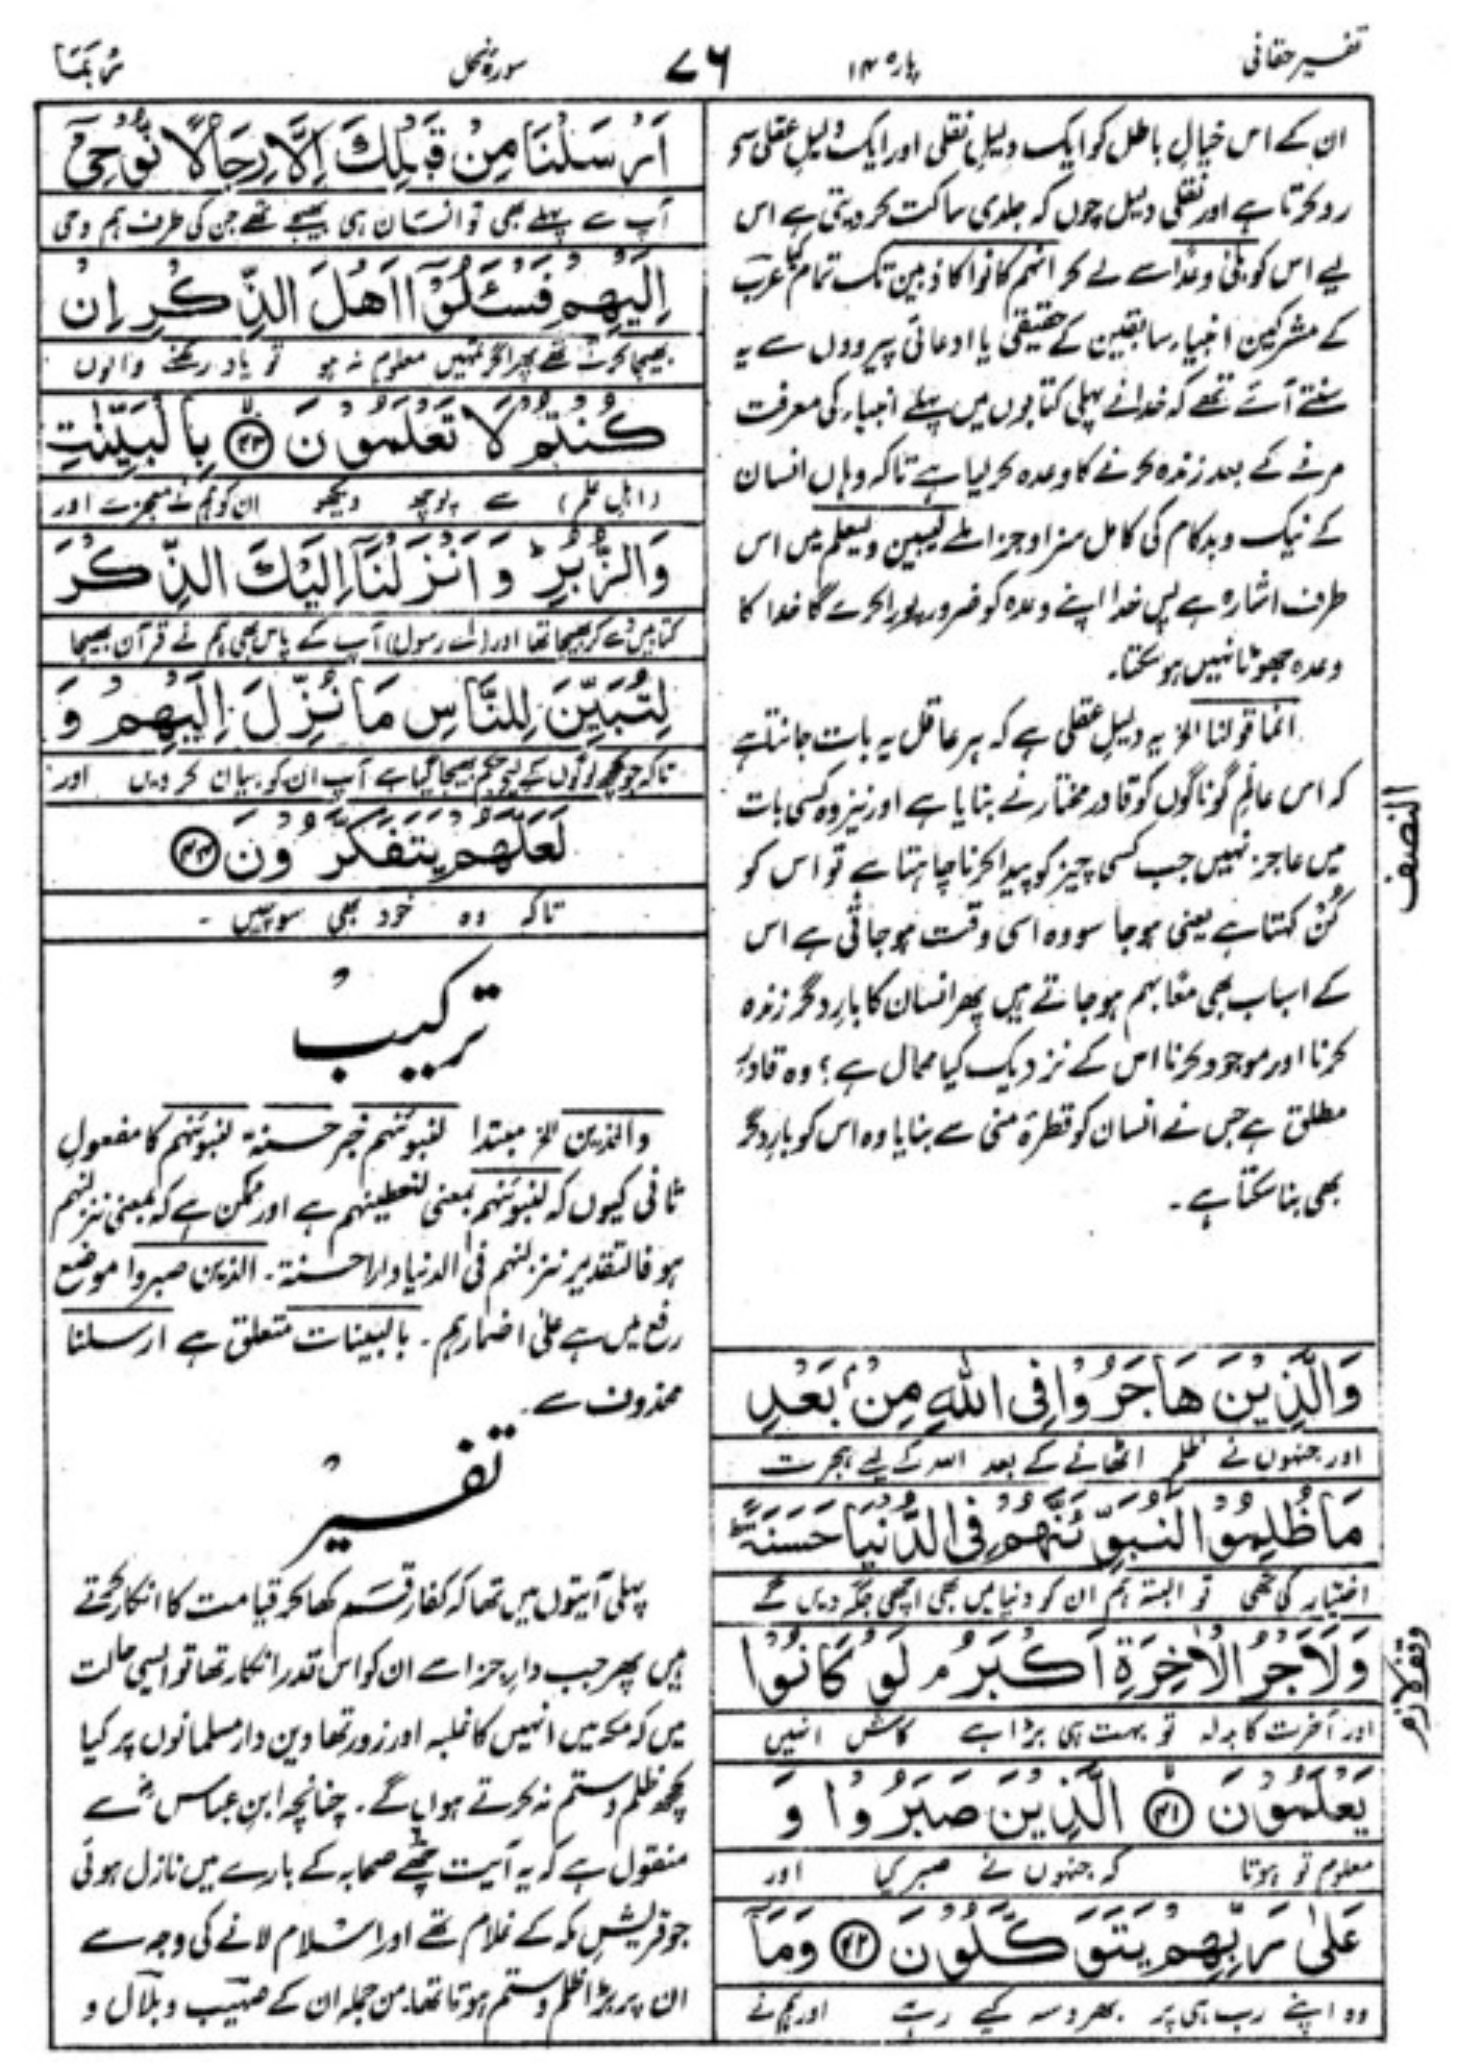 تفسیر حقانی
پارہ ۱۴
۷۶
سورۃ نحل
رُبَمَا
ان کے اس خیالِ باطل کو ایک دلیلِ نقلی اور ایک دلیلِ عقلی سے
رد کرتا ہے اور نقلی دلیل چوں کہ جلدی ساکت کر دیتی ہے اس
لیے اس کو بلیٰ وعدًا سے لے کر انہم کانوا کاذبین تک تمام کیا عرب
کے مشرکین انبیاء سابقین کے حقیقی یا ادعائی پیرووں سے یہ
سنتے آئے تھے کہ خدا نے پہلی کتابوں میں پہلے انبیاء کی معرفت
مرنے کے بعد زندہ کرنے کا وعدہ کر لیا ہے تاکہ وہاں انسان
کے نیک و بد کام کی کامل سزا و جزا ملے لیبین ولیعلم میں اس
طرف اشارہ ہے پس خدا اپنے وعدہ کو ضرور پورا کرے گا خدا کا
وعدہ جھوٹا نہیں ہو سکتا۔
انما قولنا الخ یہ دلیلِ عقلی ہے کہ ہر عاقل یہ بات جانتا ہے
کہ اس عالمِ گوناگوں کو قادرِ مختار نے بنایا ہے اور نیز وہ کسی بات
میں عاجز نہیں جب کسی چیز کو پیدا کرنا چاہتا ہے تو اس کو
کُنْ کہتا ہے یعنی ہو جا سو وہ اسی وقت ہو جاتی ہے اس
کے اسباب بھی معًا بہم ہو جاتے ہیں پھر انسان کا بارِ دگر زندہ
کرنا اور موجود کرنا اس کے نزدیک کیا محال ہے؟ وہ قادرِ
مطلق ہے جس نے انسان کو قطرۂ منی سے بنایا وہ اس کو بارِ دگر
بھی بنا سکتا ہے۔
النصف
وَالَّذِیْنَ هَاجَرُوْا فِی اللّٰهِ مِنْۢ بَعْدِ
اور جنہوں نے ظلم اٹھانے کے بعد اللہ کے لیے ہجرت
مَا ظُلِمُوْا لَنُبَوِّئَنَّهُمْ فِی الدُّنْیَا حَسَنَةً ؕ
اختیار کی تھی تو البتہ ہم ان کو دنیا میں بھی اچھی جگہ دیں گے
وَلَاَجْرُ الْاٰخِرَةِ اَكْبَرُ ۘ لَوْ كَانُوْا
اور آخرت کا بدلہ تو بہت ہی بڑا ہے کاش انہیں
وقف لازم
یَعْلَمُوْنَ ﴿۴۱﴾ الَّذِیْنَ صَبَرُوْا وَ
معلوم تو ہوتا کہ جنہوں نے صبر کیا اور
عَلٰی رَبِّهِمْ یَتَوَكَّلُوْنَ ﴿۴۲﴾ وَمَاۤ
وہ اپنے رب ہی پر بھروسہ کیے رہے اور ہم نے
اَرْسَلْنَا مِنْ قَبْلِكَ اِلَّا رِجَالًا نُّوْحِیْۤ
آپ سے پہلے بھی تو انسان ہی بھیجے تھے جن کی طرف ہم وحی
اِلَیْهِمْ فَسْـَٔلُوْۤا اَهْلَ الذِّكْرِ اِنْ
بھیجا کرتے تھے پھر اگر تمہیں معلوم نہ ہو تو یاد رکھنے والوں
كُنْتُمْ لَا تَعْلَمُوْنَ ﴿۴۳﴾ بِالْبَیِّنٰتِ
(اہل علم) سے پوچھ دیکھو ان کو ہم نے معجزے اور
وَالزُّبُرِ ؕ وَاَنْزَلْنَاۤ اِلَیْكَ الذِّكْرَ
کتابیں دے کر بھیجا تھا اور (اے رسول) آپ کے پاس بھی ہم نے قرآن بھیجا
لِتُبَیِّنَ لِلنَّاسِ مَا نُزِّلَ اِلَیْهِمْ وَ
تاکہ جو کچھ لوگوں کے لیے حکم بھیجا گیا ہے آپ ان کو بیان کر دیں اور
لَعَلَّهُمْ یَتَفَكَّرُوْنَ ﴿۴۴﴾
تاکہ وہ خود بھی سوچیں۔
ترکیب
والذین الخ مبتدا لنبوئنہم خبر حسنۃ لنبوئنہم کا مفعولِ
ثانی کیوں کہ لنبوئنہم بمعنی لنعطینہم ہے اور ممکن ہے کہ بمعنی ننزلنہم
ہو فالتقدیر ننزلنہم فی الدنیا دارا حسنۃ۔ الذین صبروا موضع
رفع میں ہے علیٰ اضمار ہم۔ بالبینات متعلق ہے ارسلنا
محذوف سے۔
تفسیر
پہلی آیتوں میں تھا کہ کفار قسم کھا کر قیامت کا انکار کرتے
ہیں پھر جب دارِ جزا سے ان کو اس قدر انکار تھا تو ایسی حالت
میں کہ مکہ میں انہیں کا غلبہ اور زور تھا دین دار مسلمانوں پر کیا
کچھ ظلم و ستم نہ کرتے ہوں گے۔ چنانچہ ابنِ عباسؓ سے
منقول ہے کہ یہ آیت چھ صحابہ کے بارے میں نازل ہوئی
جو قریشِ مکہ کے غلام تھے اور اسلام لانے کی وجہ سے
ان پر بڑا ظلم و ستم ہوتا تھا۔ من جملہ ان کے صہیب و بلال و